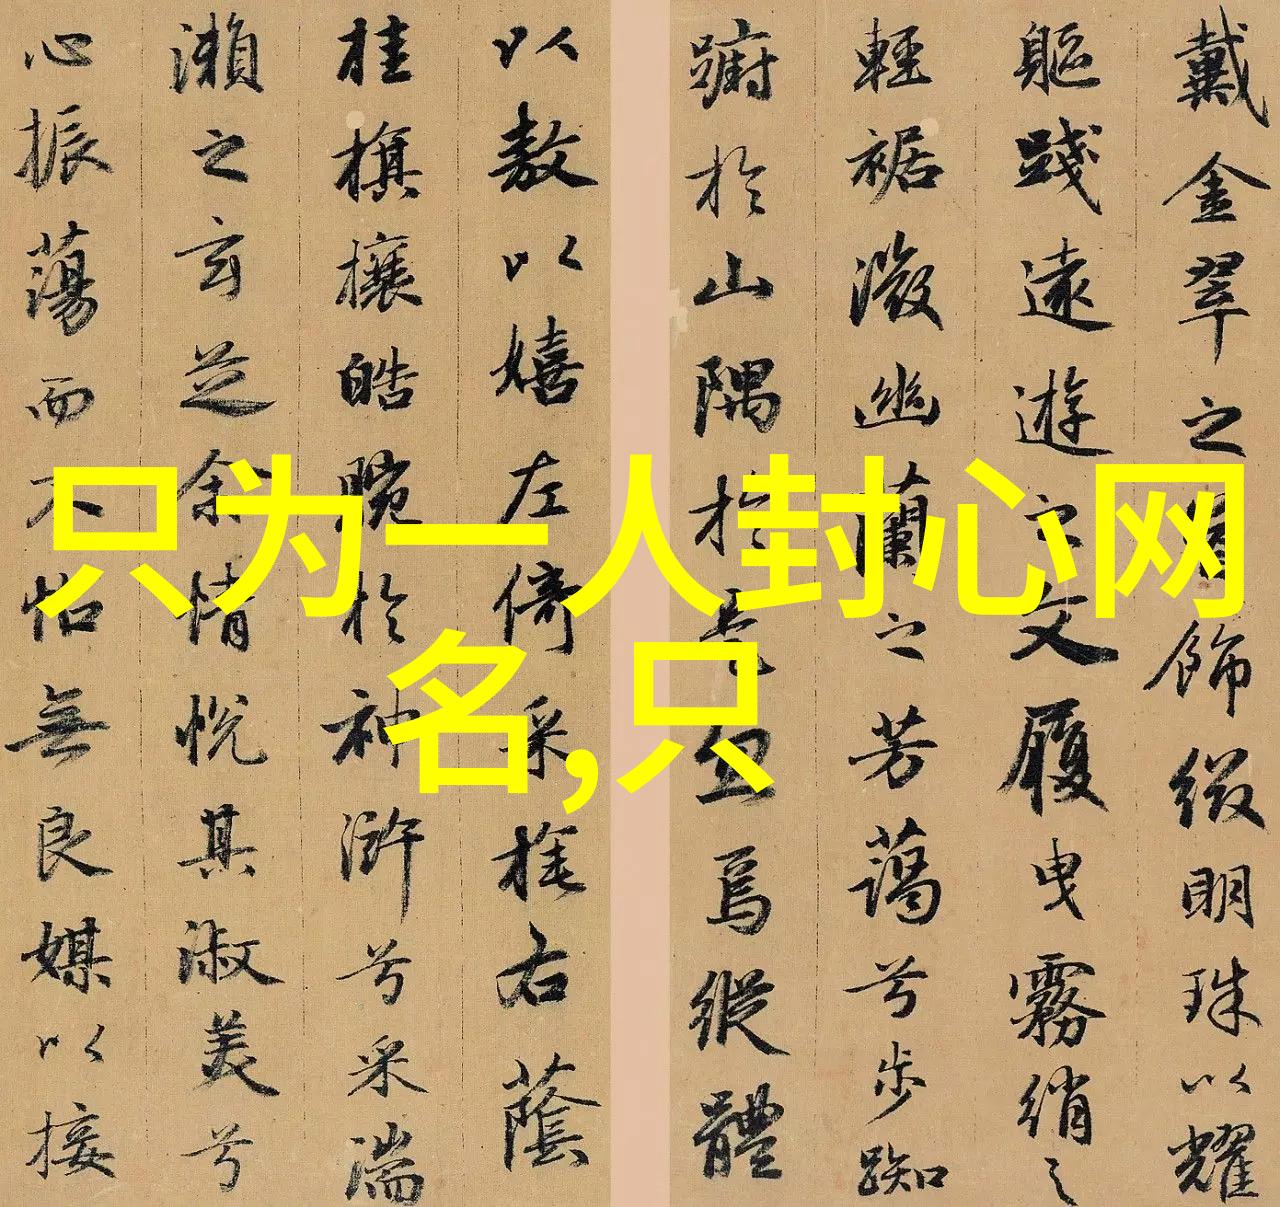 只为一人封心网
名,只
戴金翠之首飾綴明珠以耀
軀踐遠遊之文履曳霧綃之
輕裾微幽蘭之芳藹兮步踟
躕於山隅於是忽焉縱體
以敖以嬉左倚采旄右蔭
桂旗攘皓腕於神滸兮采湍
瀨之玄芝余情悅其淑美兮
心振蕩而不怡無良媒以接